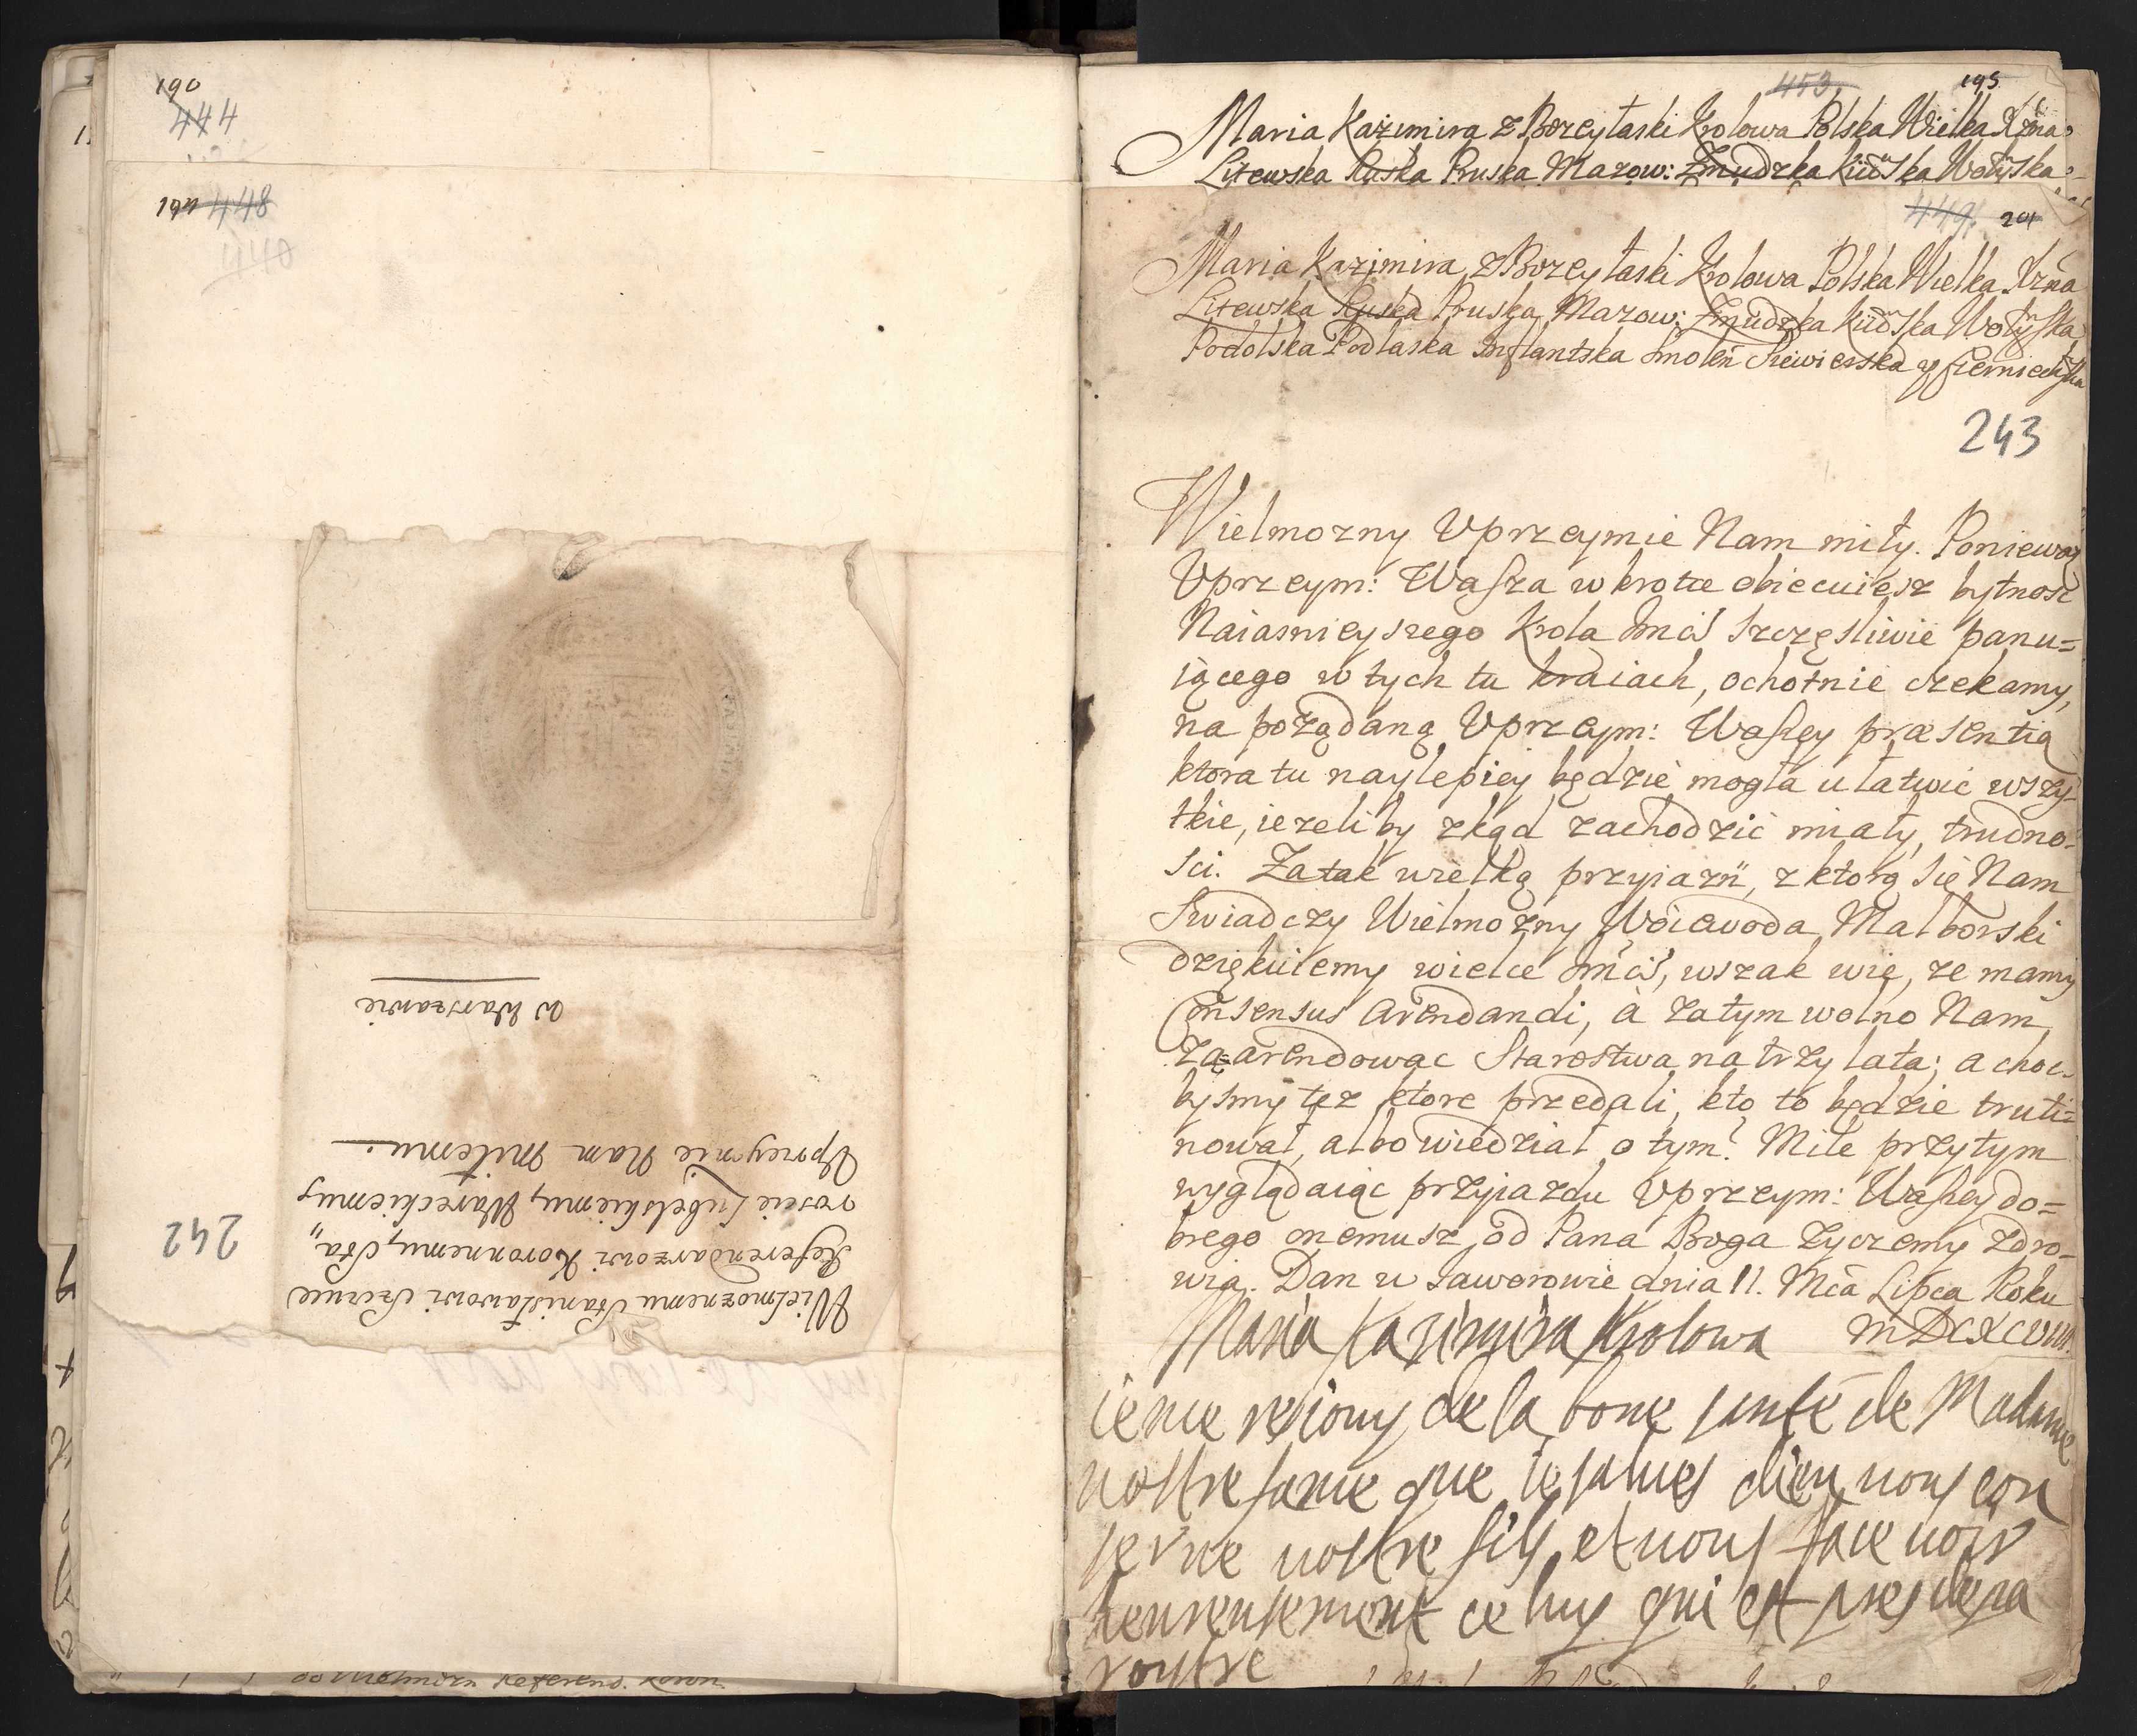 190
444
191 448
440
W Warszawie
Uprzeymie Nam Miłemu.
roscie Lubelskiemu, Wareckiemu
Referendarzowi Koronnemu, Sta„
Wielmoznemu Stanisławowi Szczuce
242
do Wielmozn Referend. Koron.
453. 195
Maria Kazimira z Bozey łaski Krolowa Polska Wielka Xżna
Litewska Ruska Pruska Mazow: Zmudzka Kiiowska Wołyńska
449. 201
Maria Kazimira z Bozey łaski Krolowa Polska Wielka Xzna
Litewska Ruska Pruska Mazow: Zmudzka Kiiowska Wołyńska
Podolska Podlaska Inflantska Smoleń Siewierska y Czerniechowska
243
Wielmozny Uprzeymie Nam miły. Poniewaz
Uprzeym: Wasza w krotce obiecuiesz bytnosc
Naiasnieyszego Krola Jmci szczęsliwie panu=
iącego w tych tu kraiach, ochotnie czekamy,
na pożądaną Uprzeym: Waszey præsentią
ktora tu naylepiey będzie mogła ułatwic wszy=
tkie, iezeliby zkąd zachodzić miały, trudno=
sci. Za tak wielką przyiazń, z ktorą się Nam
Swiadczy Wielmożny Woiewoda Malborski
dziękuiemy wielce Jmci, wszak wie, ze mamy
Consensus Arendandi, à zatym wolno Nam
za=arendowac Starostwa na trzy lata; a choc=
bysmy tez ktore przedali, kto to będzie truti=
nował, albo wiedział o tym? Mile przytym
wyglądaiąc przyiazdu Uprzeym: Waszey do=
brego onemusz od Pana Boga Życzemy zdro=
wia. Dan w Jaworowie dnia 11. Mca Lipca Roku
Maria Kazimira Krolowa MDCXCVIII.
ie me reiouy de la bone sante de Madame
vostre fame que ie salues dieu vous con
serve vostre fils et nous face voir
heureusement celuy qui est pres de pa
roystre